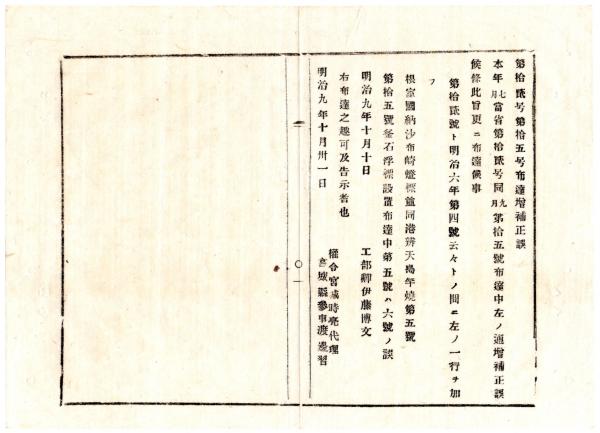 第拾貳号第拾五号布達增補正誤
本年七月當省第拾貳号同九月第拾五號布達中左ノ通增補正誤
候條此旨更ニ布達候事
第拾貳號ト明治六年第四號云々トノ間ニ左ノ一行ヲ加
フ
根室國納沙布崎燈標並同港辨天島年燒第五號
第拾五號釜石浮標設置布達中第五號ハ六號ノ誤
明治九年十月十日
工部卿伊藤博文
右布達之趣可及告示者也
明治九年十月卅一日
權令宮城時亮代理
宮城縣參事渡邊習